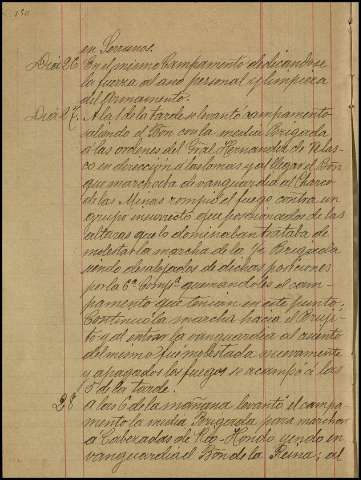 en
Dia 26 En el mismo Campamento dedicandose
la fuerza al aseo personal y limpieza
del Armamento.
Dia 27. A la 1 de la tarde se levantó campamento
saliendo el Bon con la media Brigada
a las ordenes del Gral Hernandez de Velas-
co en dirección á las lomas y al llegar el Bon
que marchaba de vanguardia al Charco
de las Minas rompió el fuego contra un
grupo insurrecto que posesionados de las
alturas que lo dominaban trataba de
molestar la marcha de la Brigada
siendo desalojados de dichas posiciones
por la 6ª Compª quemandoles el cam-
pamento que tenian en este punto;
Continuó la marcha hacia el
y al entrar la vanguardia al
del mismo fue molestada nuevamente
y apagados los fuegos se acampó a las
5 de la tarde.
28 A las 6 de la mañana levantó el campa-
mento la media Brigada para marchar
a Cabezadas de Rio-Hondo yendo en
vanguardia el Bon de la Reina; al